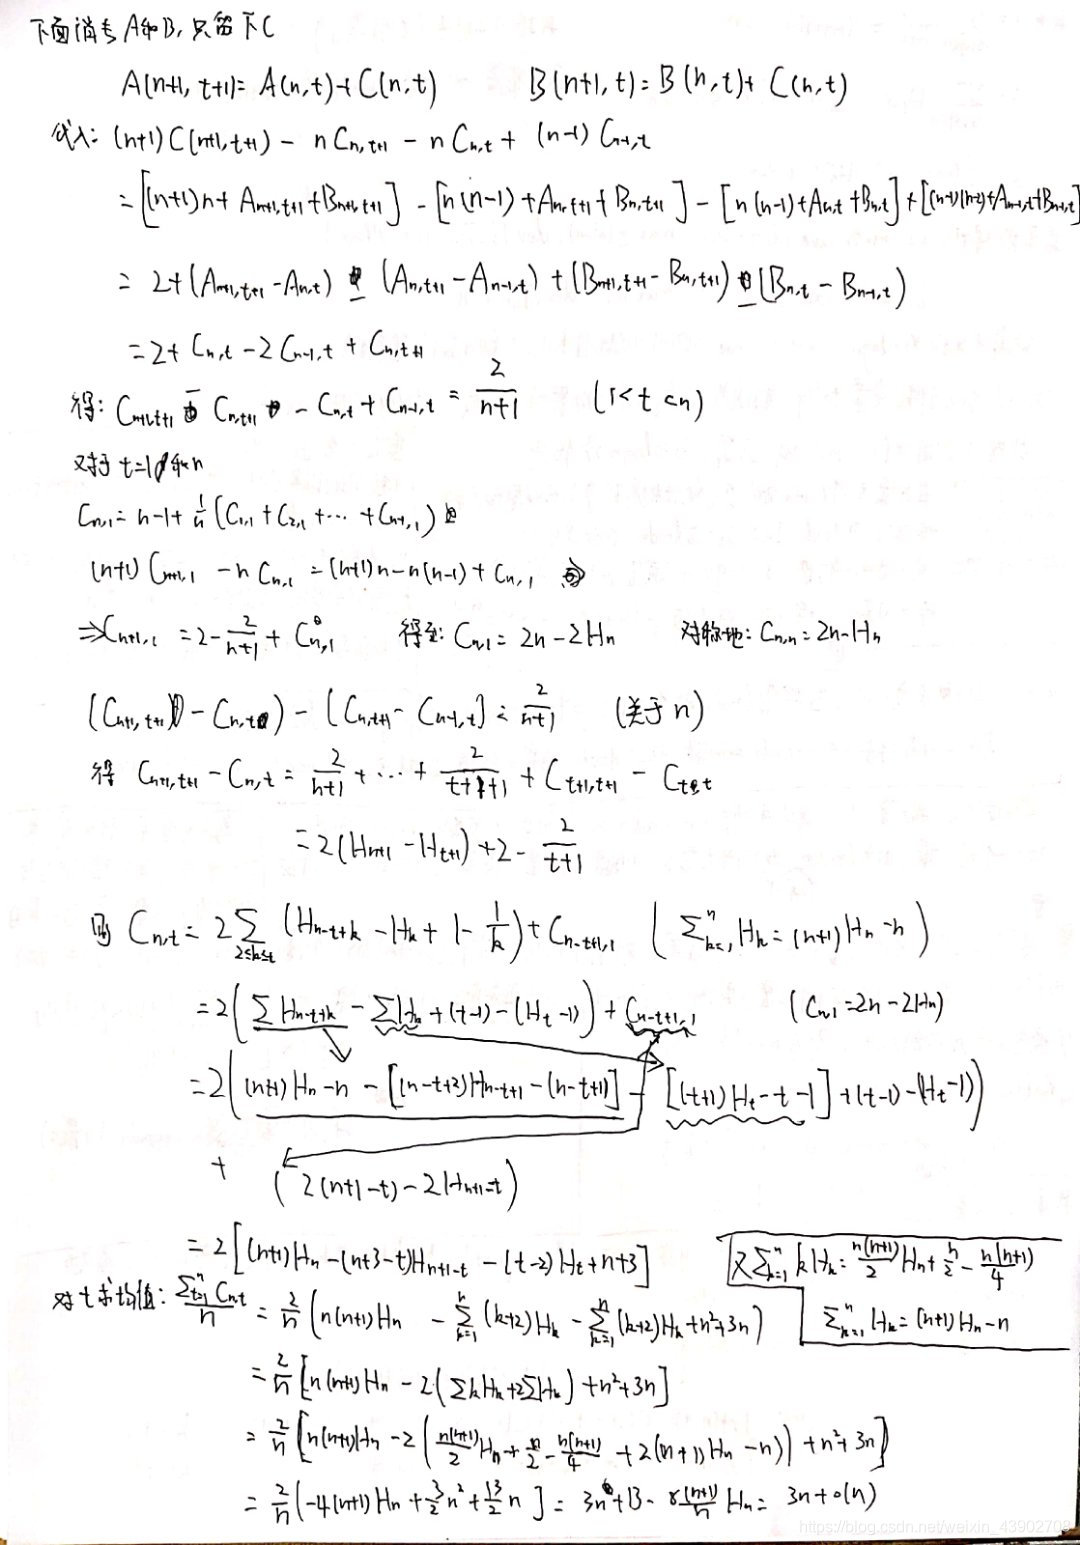 下面消去A和B,只留下C
A(n+1, t+1)= A(n,t)+C(n,t) B(n+1,t)= B(n,t)+ C(n,t)
代入: (n+1)C(n+1,t+1) - nC_{n,t+1} - nC_{n,t} + (n-1)C_{n-1,t}
= [(n+1)n+ A_{n+1,t+1}+B_{n+1,t+1}] - [n(n-1)+A_{n,t+1}+B_{n,t+1}] - [n(n-1)+A_{n,t}+B_{n,t}]+[(n-1)(n-2)+A_{n-1,t}+B_{n-1,t}]
= 2+(A_{n+1,t+1}-A_{n,t}) - (A_{n,t+1}-A_{n-1,t})+(B_{n+1,t+1}-B_{n,t+1}) - (B_{n,t}-B_{n-1,t})
=2+ C_{n,t}-2C_{n-1,t}+C_{n,t+1}
得: C_{n+1,t+1} - C_{n,t+1} - C_{n,t}+C_{n-1,t} = 2/(n+1) (1<t<n)
对于 t=1和n
C_{n,1}= n-1+ 1/n (C_{1,1}+C_{2,1}+⋯+C_{n-1,1})
(n+1)C_{n+1,1} - nC_{n,1} =(n+1)n-n(n-1)+C_{n,1}
⇒C_{n+1,1} =2- 2/(n+1) + C_{n,1} 得到: C_{n,1}= 2n-2H_n 对称地: C_{n,n}=2n-H_n
(C_{n+1,t+1}-C_{n,t})-(C_{n,t+1}-C_{n-1,t}]= 2/(n+1) (关于n)
得 C_{n+1,t+1}-C_{n,t}= 2/(n+1) +⋯+ 2/(t+1+1) + C_{t+1,t+1} - C_{t,t}
=2(H_{n+1}-H_{t+1})+2- 2/(t+1)
则 C_{n,t}= 2∑_{2≤k≤t} (H_{n-t+k} -H_k+ 1- 1/k)+C_{n-t+1,1} (∑_{k=1}^n H_k=(n+1)H_n-n)
=2(∑H_{n-t+k} -∑H_k+(t-1)-(H_t-1))+C_{n-t+1,1} (C_{n,1}=2n-2H_n)
=2((n+1)H_n-n -[(n-t+2)H_{n-t+1}-(n-t+1)] - [(t+1)H_t-t-1]+(t-1)-(H_t-1))
+ (2(n+1-t)-2H_{n+1-t})
= 2[(n+1)H_n-(n+3-t)H_{n+1-t} -(t-2)H_t+n+3] 又∑_{k=1}^n kH_k= n(n+1)/2 H_n+ n/2 - n(n+1)/4
对t求均值: ∑_{t=1}^n C_{n,t}/n = 2/n (n(n+1)H_n - ∑_{k=1}^n (k+2)H_k -∑_{k=1}^n (k+2)H_k+n²+3n) ∑_{k=1}^n H_k=(n+1)H_n-n
= 2/n [n(n+1)H_n-2(∑kH_k+2∑H_k)+n²+3n]
= 2/n [n(n+1)H_n-2(n(n+1)/2 H_n+ n/2 - n(n+1)/4 +2(n+1)H_n-n))+n²+3n]
= 2/n (-4(n+1)H_n+ 3/2 n²+ 13/2 n] = 3n+13- 8(n+1)/n H_n= 3n+o(n)
https://blog.csdn.net/weixin_43902708